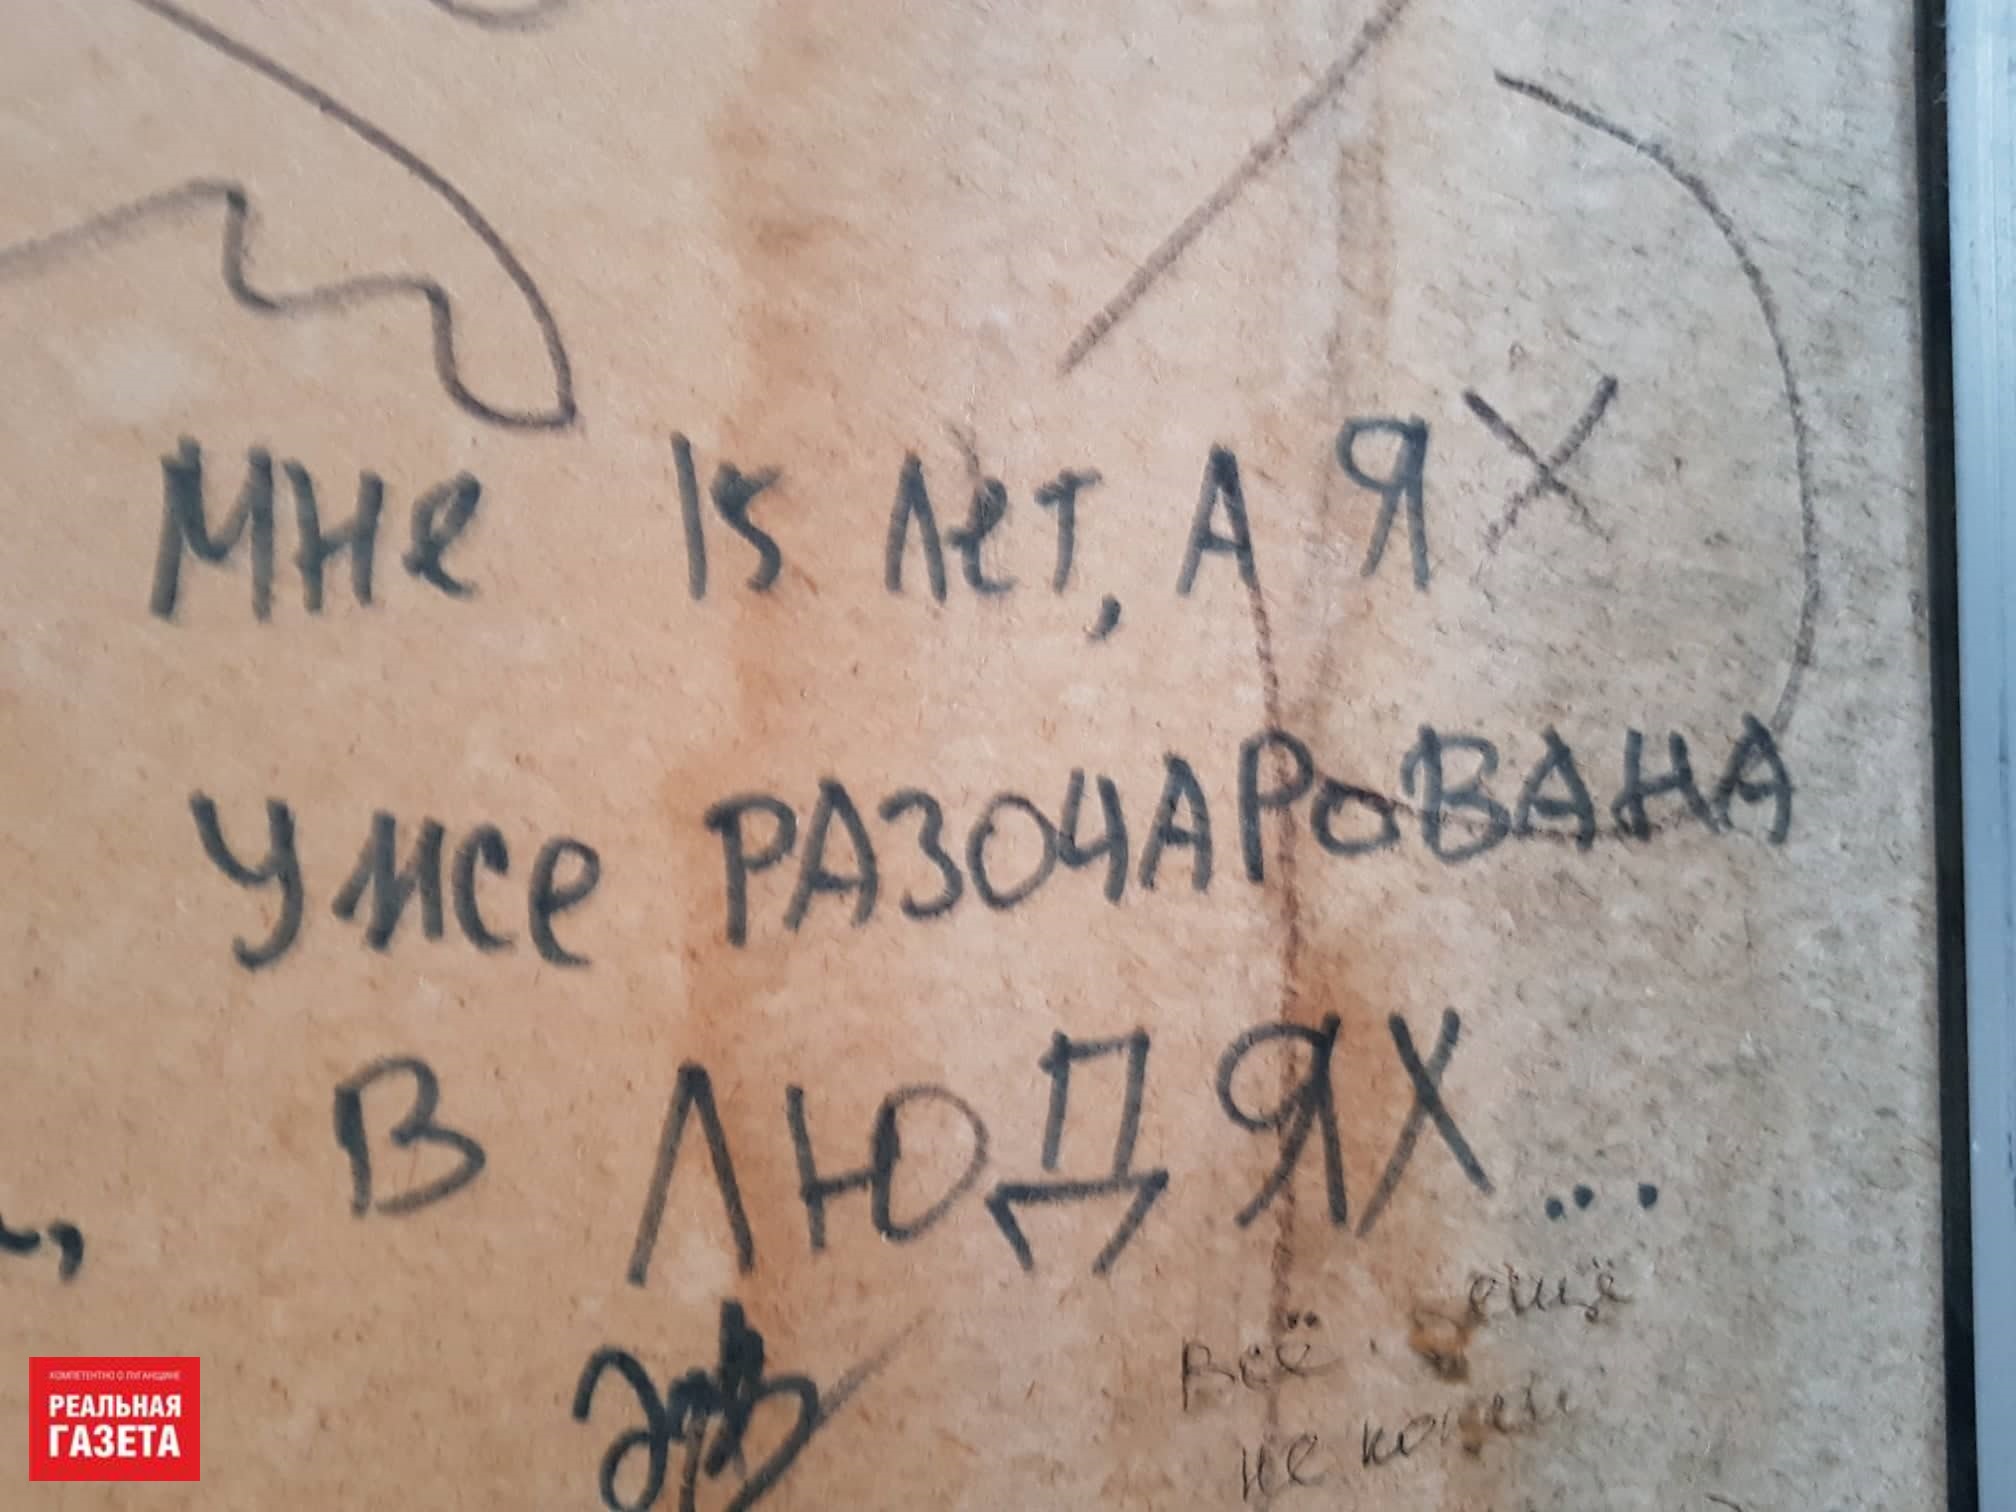 мне 15 лет, А Я
уже РАЗОЧАРОВАНА
В ЛЮДЯХ...
всё ещё
не конец
КОМПЕТЕНТНО О ЛУГАНЩИНЕ
РЕАЛЬНАЯ
ГАЗЕТА